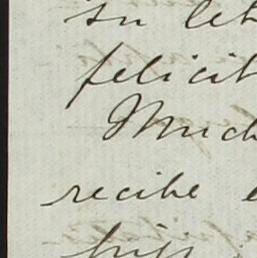 su let
felicit
Much
recibe e